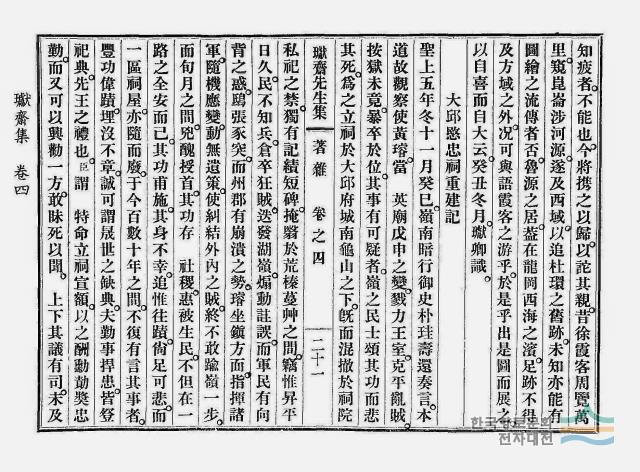 知疲者不能也今將携之以歸以詑其親昔徐霞客周覽萬
里窺崑崙涉河源遂及西域以追杜環之舊跡未知亦能有
圖繪之流傳者否魯源之居盖在龍岡西海之濱足跡不得
及方域之外况可與語霞客之游乎於是乎出是圖而展之
以自喜而自大云癸丑冬月瓛卿識
大邱愍忠祠重建記
聖上五年冬十一月癸巳嶺南暗行御史朴珪壽還奏言本
道故觀察使黃璿當 英廟戊申之變戮力王室克平亂賊
按獄未竟暴卒於位其事有可疑者嶺之民士頌其功而悲
其死爲之立祠於大邱府城南龜山之下旣而混撤於祠院
瓛齋先生集 著雜 卷之四 二十一
私祀之禁獨有記績短碑掩翳於荒榛蔓艸之間竊惟昇平
日久民不知兵倉卒狂賊迭發湖嶺煽動詿誤而軍民有向
背之惑鴟張豕突而州郡有崩潰之勢璿坐鎭方面指揮諸
軍隨機應變動無遺策使糾結外內之賊終不敢踰嶺一步
而旬月之間兇醜授首其功存 社稷惠被生民不但在一
路之全安而已其功甫施其身不幸追惟往蹟尙足可悲而
一區祠屋亦隨而廢于今百數十年之間不復有言其事者
豐功偉蹟堙沒不章誠可謂晟世之缺典夫勤事捍患皆登
祀典先王之禮也臣謂 特命立祠宣額以之酬勳勩獎忠
勤而又可以興勸一方敢昧死以聞 上下其議有司未及
瓛齋集 卷四
한국향토문화
전자대전